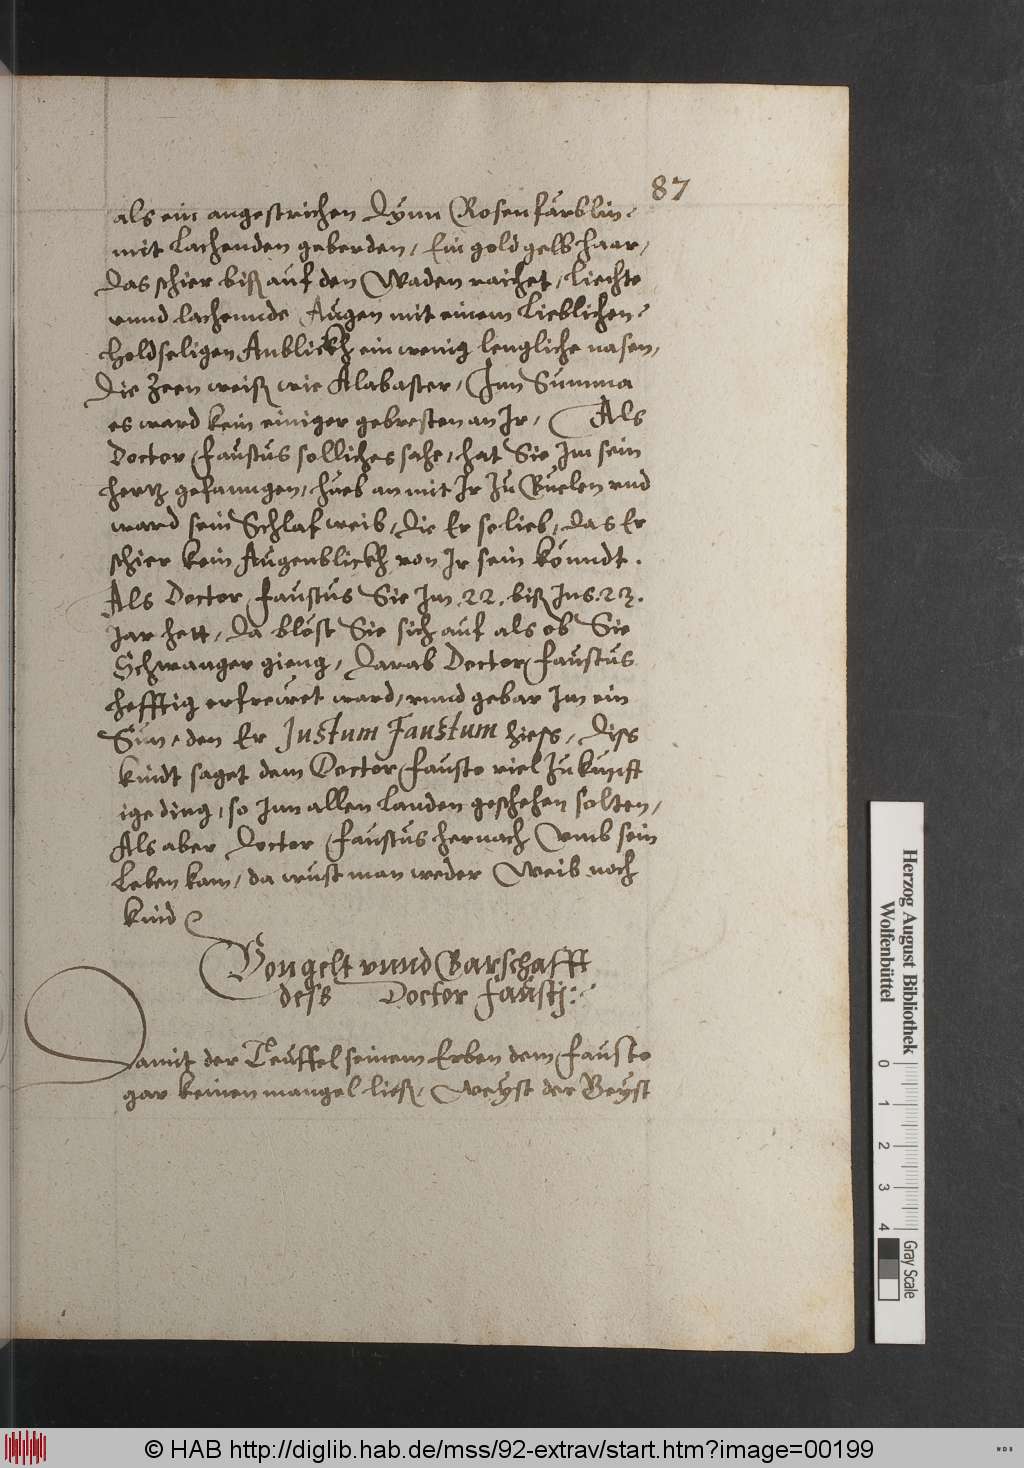 87
als ein angestrichen dynn Rosenfärblin /
mit lachenden geberden / Ein goldgelb haar /
das schier biß auf den Waden raichet / liechte
vnnd lachennde Augen mit einem lieblichen /
holdseligen Anblickh ein wenig lengliche nasen /
die Zeen weiß wie Alabaster / Inn Summa
es ward kein einiger gebresten an Ir / Als
Doctor Faustus solliches sahe / hat Sie Im sein
hertz gefanngen / hueb an mit Ir zu Buelen vnd
ward sein Schlafweib / die Er so lieb / das Er
schier kein Augenblickh von Ir sein konndt .
Als Doctor Faustus Sie Im .22. biß Ins .23.
Jar hett / da blöst Sie sich auf als ob Sie
Schwanger gieng / darab Doctor Faustus
hefftig erfrewet ward / vnnd gebar Im ein
Sun / den Er Justum Faustum hiess / diss
kindt saget dem Doctor Fausto viel Zukunfft
ige ding / so Inn allen landen geschehen solten /
Als aber doctor Faustus hernach Vmb sein
leben kam / da wust man weder Weib noch
kind
Von gelt vnnd Barschafft
dess Doctor Faustj :/
Damit der Teuffel seinem Erben dem Fausto
gar keinen mangel ließ / Weyst der Geyst
Herzog August Bibliothek
Wolfenbüttel
0 1 2 3 4
Gray Scale
© HAB http://diglib.hab.de/mss/92-extrav/start.htm?image=00199
WDB